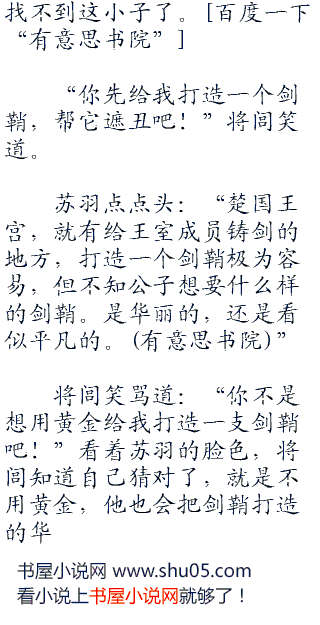 找不到这小子了。[百度一下
“有意思书院”]
“你先给我打造一个剑
鞘，帮它遮丑吧！”将闾笑
道。
苏羽点点头：“楚国王
宫，就有给王室成员铸剑的
地方，打造一个剑鞘极为容
易，但不知公子想要什么样
的剑鞘。是华丽的，还是看
似平凡的。(有意思书院)”
将闾笑骂道：“你不是
想用黄金给我打造一支剑鞘
吧！”看着苏羽的脸色，将
闾知道自己猜对了，就是不
用黄金，他也会把剑鞘打造
的华
书屋小说网 www.shu05.com
看小说上书屋小说网就够了！